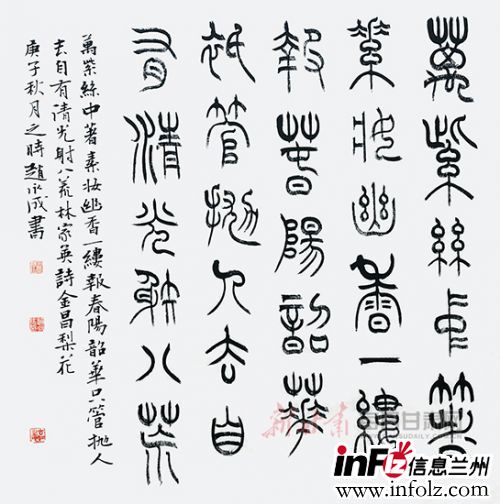 萬紫絲中著
素妝幽香一縷
報春陽韶華
祇管拋人去自
有清光射八荒
萬紫絲中著素妝幽香一縷報春陽韶華只管拋人
去自有清光射八荒林家英詩金昌梨花
庚子秋月之時趙永成書
inFlz信息兰州
www.infolz.com